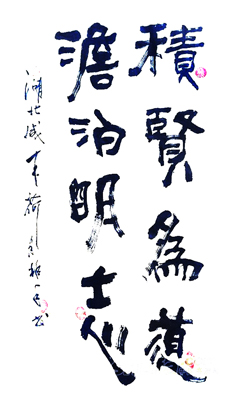 積賢為道
澹泊明志
湖北咸丰